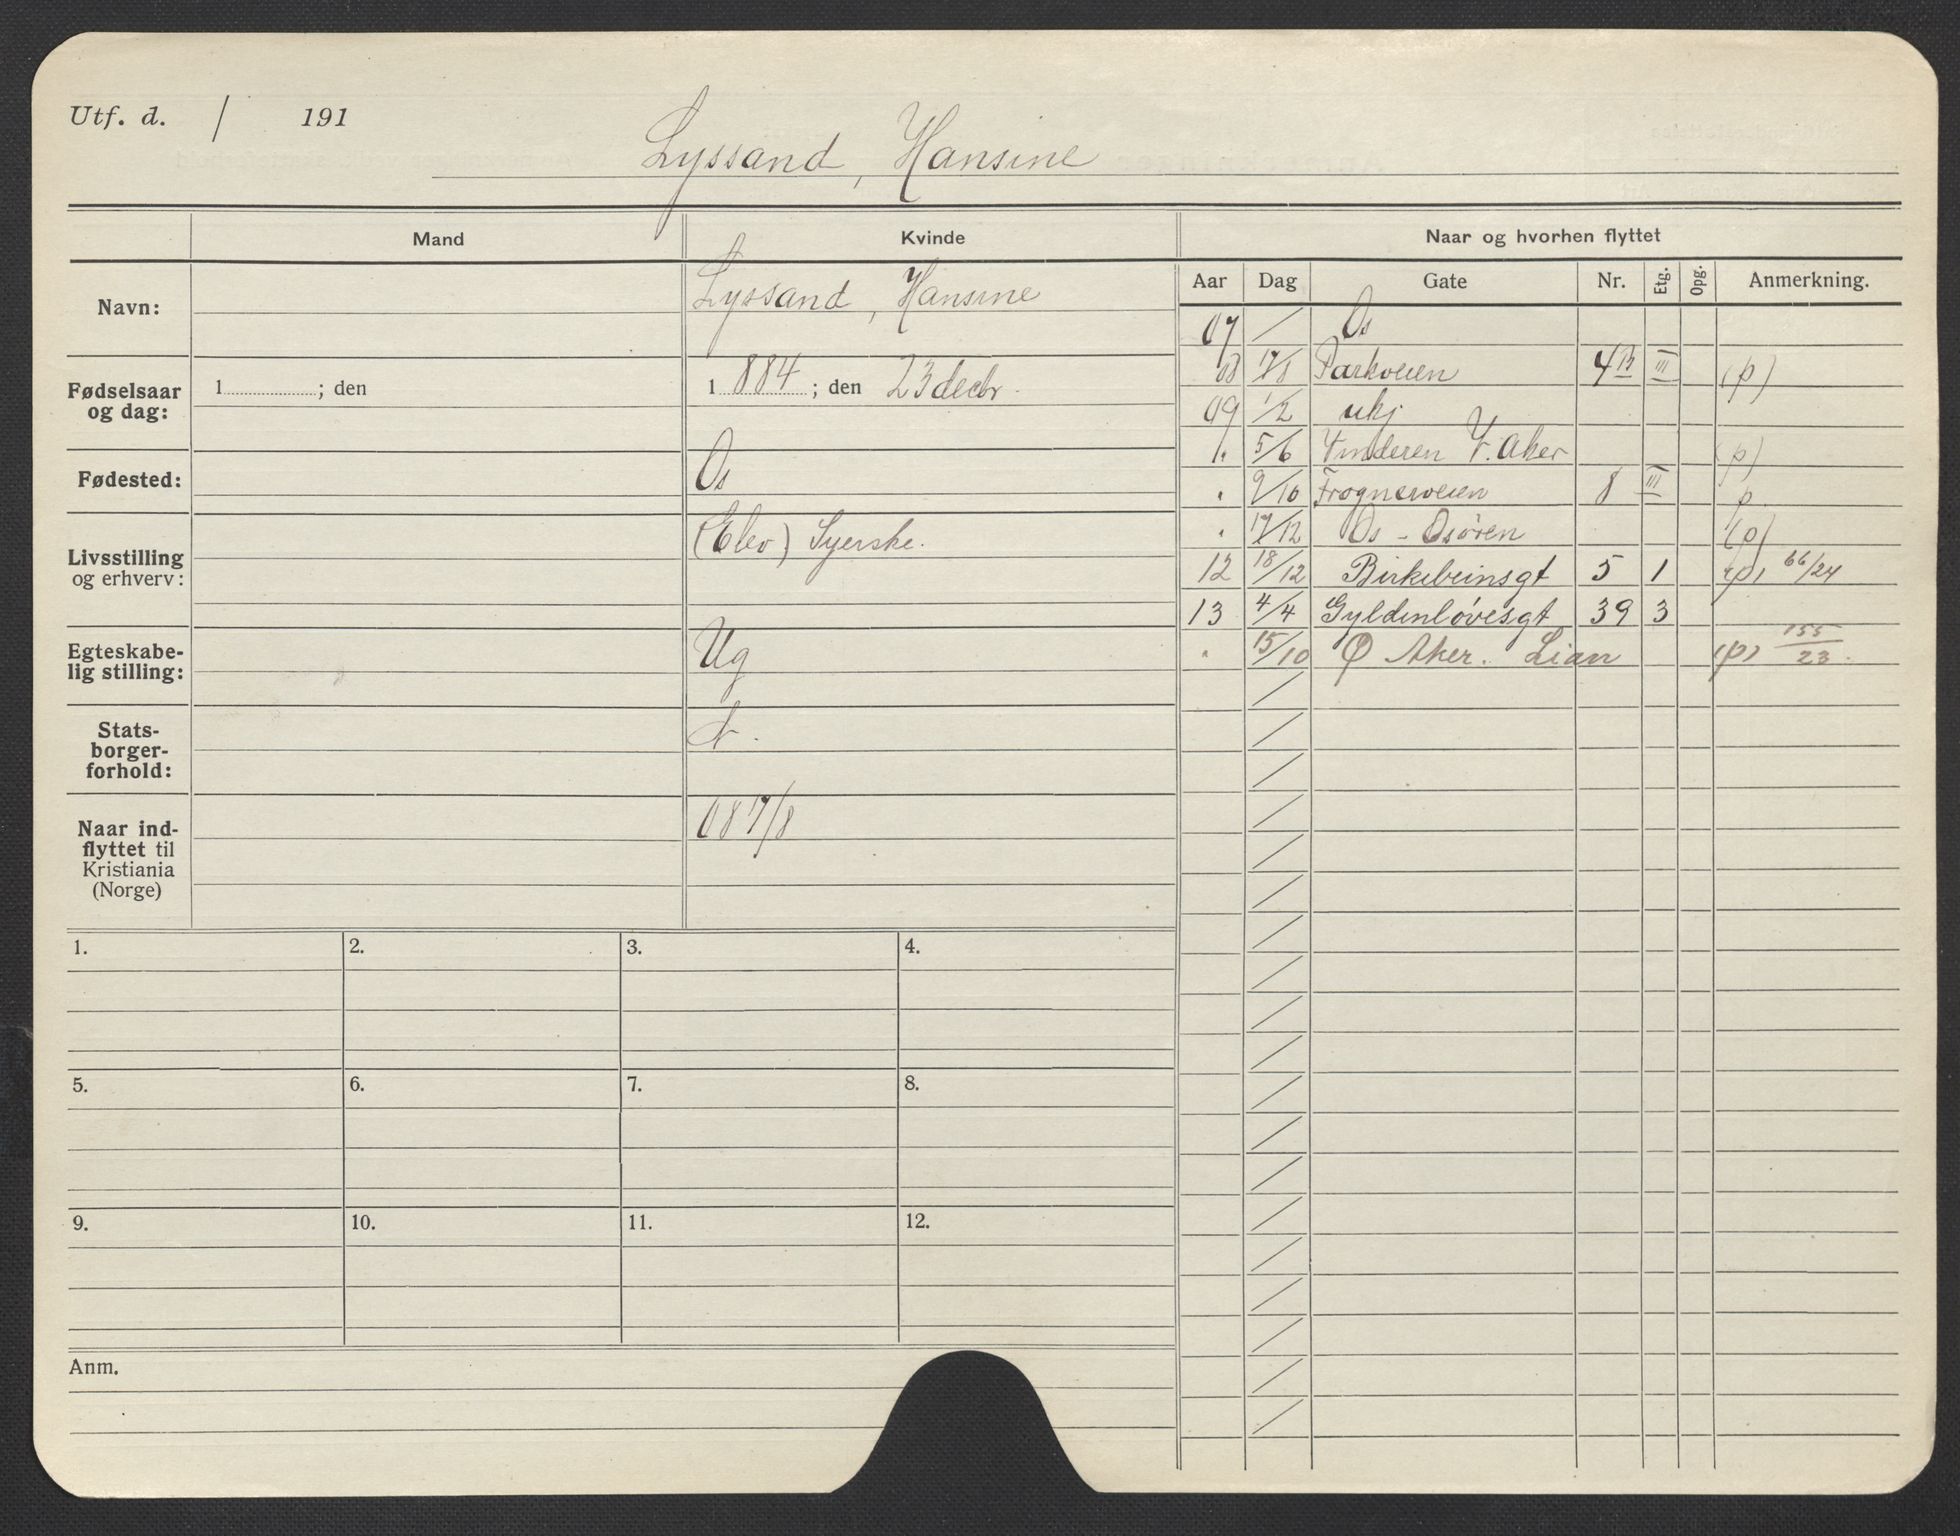 Utf. d. / 191
Lyssand, Hansine
Mand
Kvinde
Naar og hvorhen flyttet
Navn:
Lyssand, Hansine
Fødselsaar og dag:
1 ; den
1884 ; den 23 decbr.
Fødested:
Os
Livsstilling og erhverv:
(Elev) Syerske.
Egteskabe-
lig stilling:
Ug
Stats-
borger-
forhold:
N.
Naar ind-
flyttet til
Kristiania
(Norge)
08 17/8
Aar Dag Gate Nr. Etg. Opg. Anmerkning.
07 / Os
08 17/8 Parkveien 4B III (p)
09 1/2 ukj
". 5/6 Vinderen V. Aker (p)
" 9/10 Frognerveien 8 III p.
" 17/12 Os - Osören (p)
12 18/12 Birkebeinsgt 5 1 (p) 66/24
13 4/4 Gyldenløvesgt 39 3
" 15/10 Ø Aker. Lian (p) 155/23.
1. 2. 3. 4.
5. 6. 7. 8.
9. 10. 11. 12.
Anm.